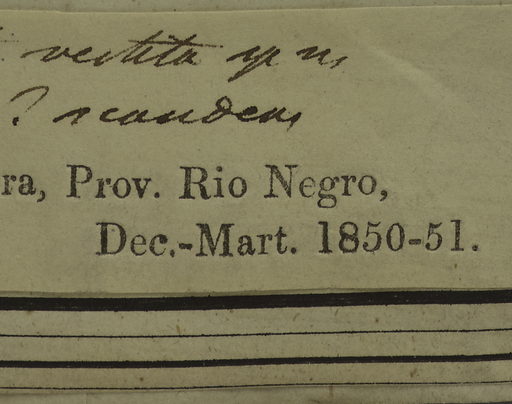 vestita sp n,
? scandens
ra, Prov. Rio Negro,
Dec.-Mart. 1850-51.